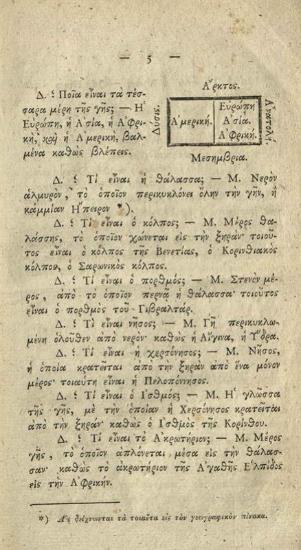 — 5 —
Δ. Ποῖα εἶναι τὰ τέσ-
σαρα μέρη τῆς γῆς; — Ἡ
Εὐρώπη, ἡ Ἀσία, ἡ Ἀφρι-
κή, καὶ ἡ Ἀμερική, βαλ-
μένα καθὼς βλέπεις.
Ἄρκτος.
Δύσις.
Ἀμερική.
Εὐρώπη
Ἀσία.
Ἀφρική.
Ἀνατολή.
Μεσημβρία.
Δ. Τί εἶναι ἡ θάλασσα; — Μ. Νερὸν
ἁλμυρόν, τὸ ὁποῖον περικυκλόνει ὅλην τὴν γῆν, ἢ
καμμίαν Ἤπειρον *).
Δ. Τί εἶναι ὁ κόλπος; — Μ. Μέρος θα-
λάσσης, τὸ ὁποῖον χώνεται εἰς τὴν ξηράν· τοιοῦ-
τος εἶναι ὁ κόλπος τῆς Βενετίας, ὁ Κορινθιακὸς
κόλπος, ὁ Σαρωνικὸς κόλπος.
Δ. Τί εἶναι ὁ πορθμός; — Μ. Στενὸν μέ-
ρος, ἀπὸ τὸ ὁποῖον περνᾷ ἡ θάλασσα· τοιοῦτος
εἶναι ὁ πορθμὸς τοῦ Γιβραλτάρ.
Δ. Τί εἶναι νῆσος; — Μ. Γῆ περικυκλω-
μένη ὁλοῦθεν ἀπὸ νερόν· καθὼς ἡ Αἴγινα, ἡ Ὕδρα.
Δ. Τί εἶναι ἡ χερσόνησος; — Μ. Νῆσος,
ἡ ὁποία κρατεῖται ἀπὸ τὴν ξηρὰν ἀπὸ ἕνα μόνον
μέρος· τοιαύτη εἶναι ἡ Πελοπόννησος.
Δ. Τί εἶναι ὁ Ἰσθμός; — Μ. Ἡ γλῶσσα
τῆς γῆς, μὲ τὴν ὁποίαν ἡ Χερσόνησος κρατεῖται
ἀπὸ τὴν ξηράν· καθὼς ὁ Ἰσθμὸς τῆς Κορίνθου.
Δ. Τί εἶναι τὸ Ἀκρωτήριον; — Μ. Μέρος
γῆς, τὸ ὁποῖον ἁπλόνεται μέσα εἰς τὴν θάλασ-
σαν· καθὼς τὸ ἀκρωτήριον τῆς Ἀγαθῆς Ἐλπίδος
εἰς τὴν Ἀφρικήν.
*) Ἂς δείχνωνται τὰ τοιαῦτα εἰς τὸν γεωγραφικὸν πίνακα.